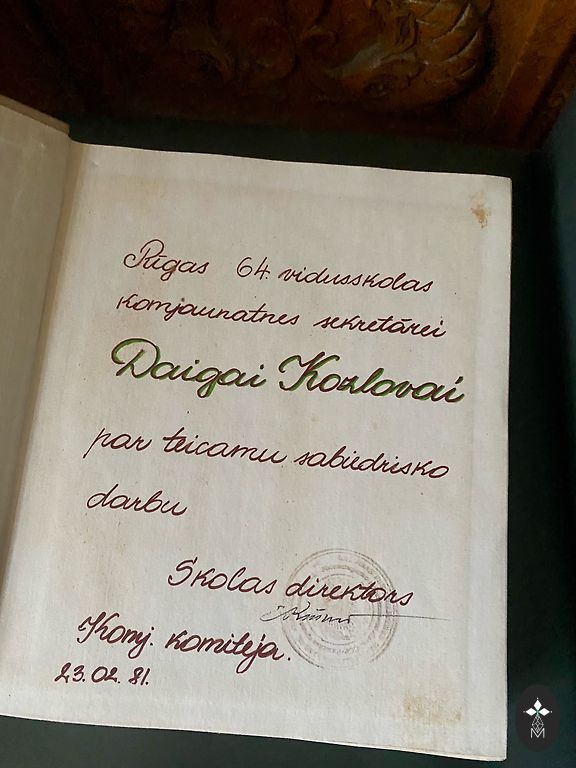 Rīgas 64. vidusskolas
komjaunatnes sekretārei
Daigai Kozlovai
par teicamu sabiedrisko
darbu
Skolas direktors
Komj. komiteja.
23.02.81.